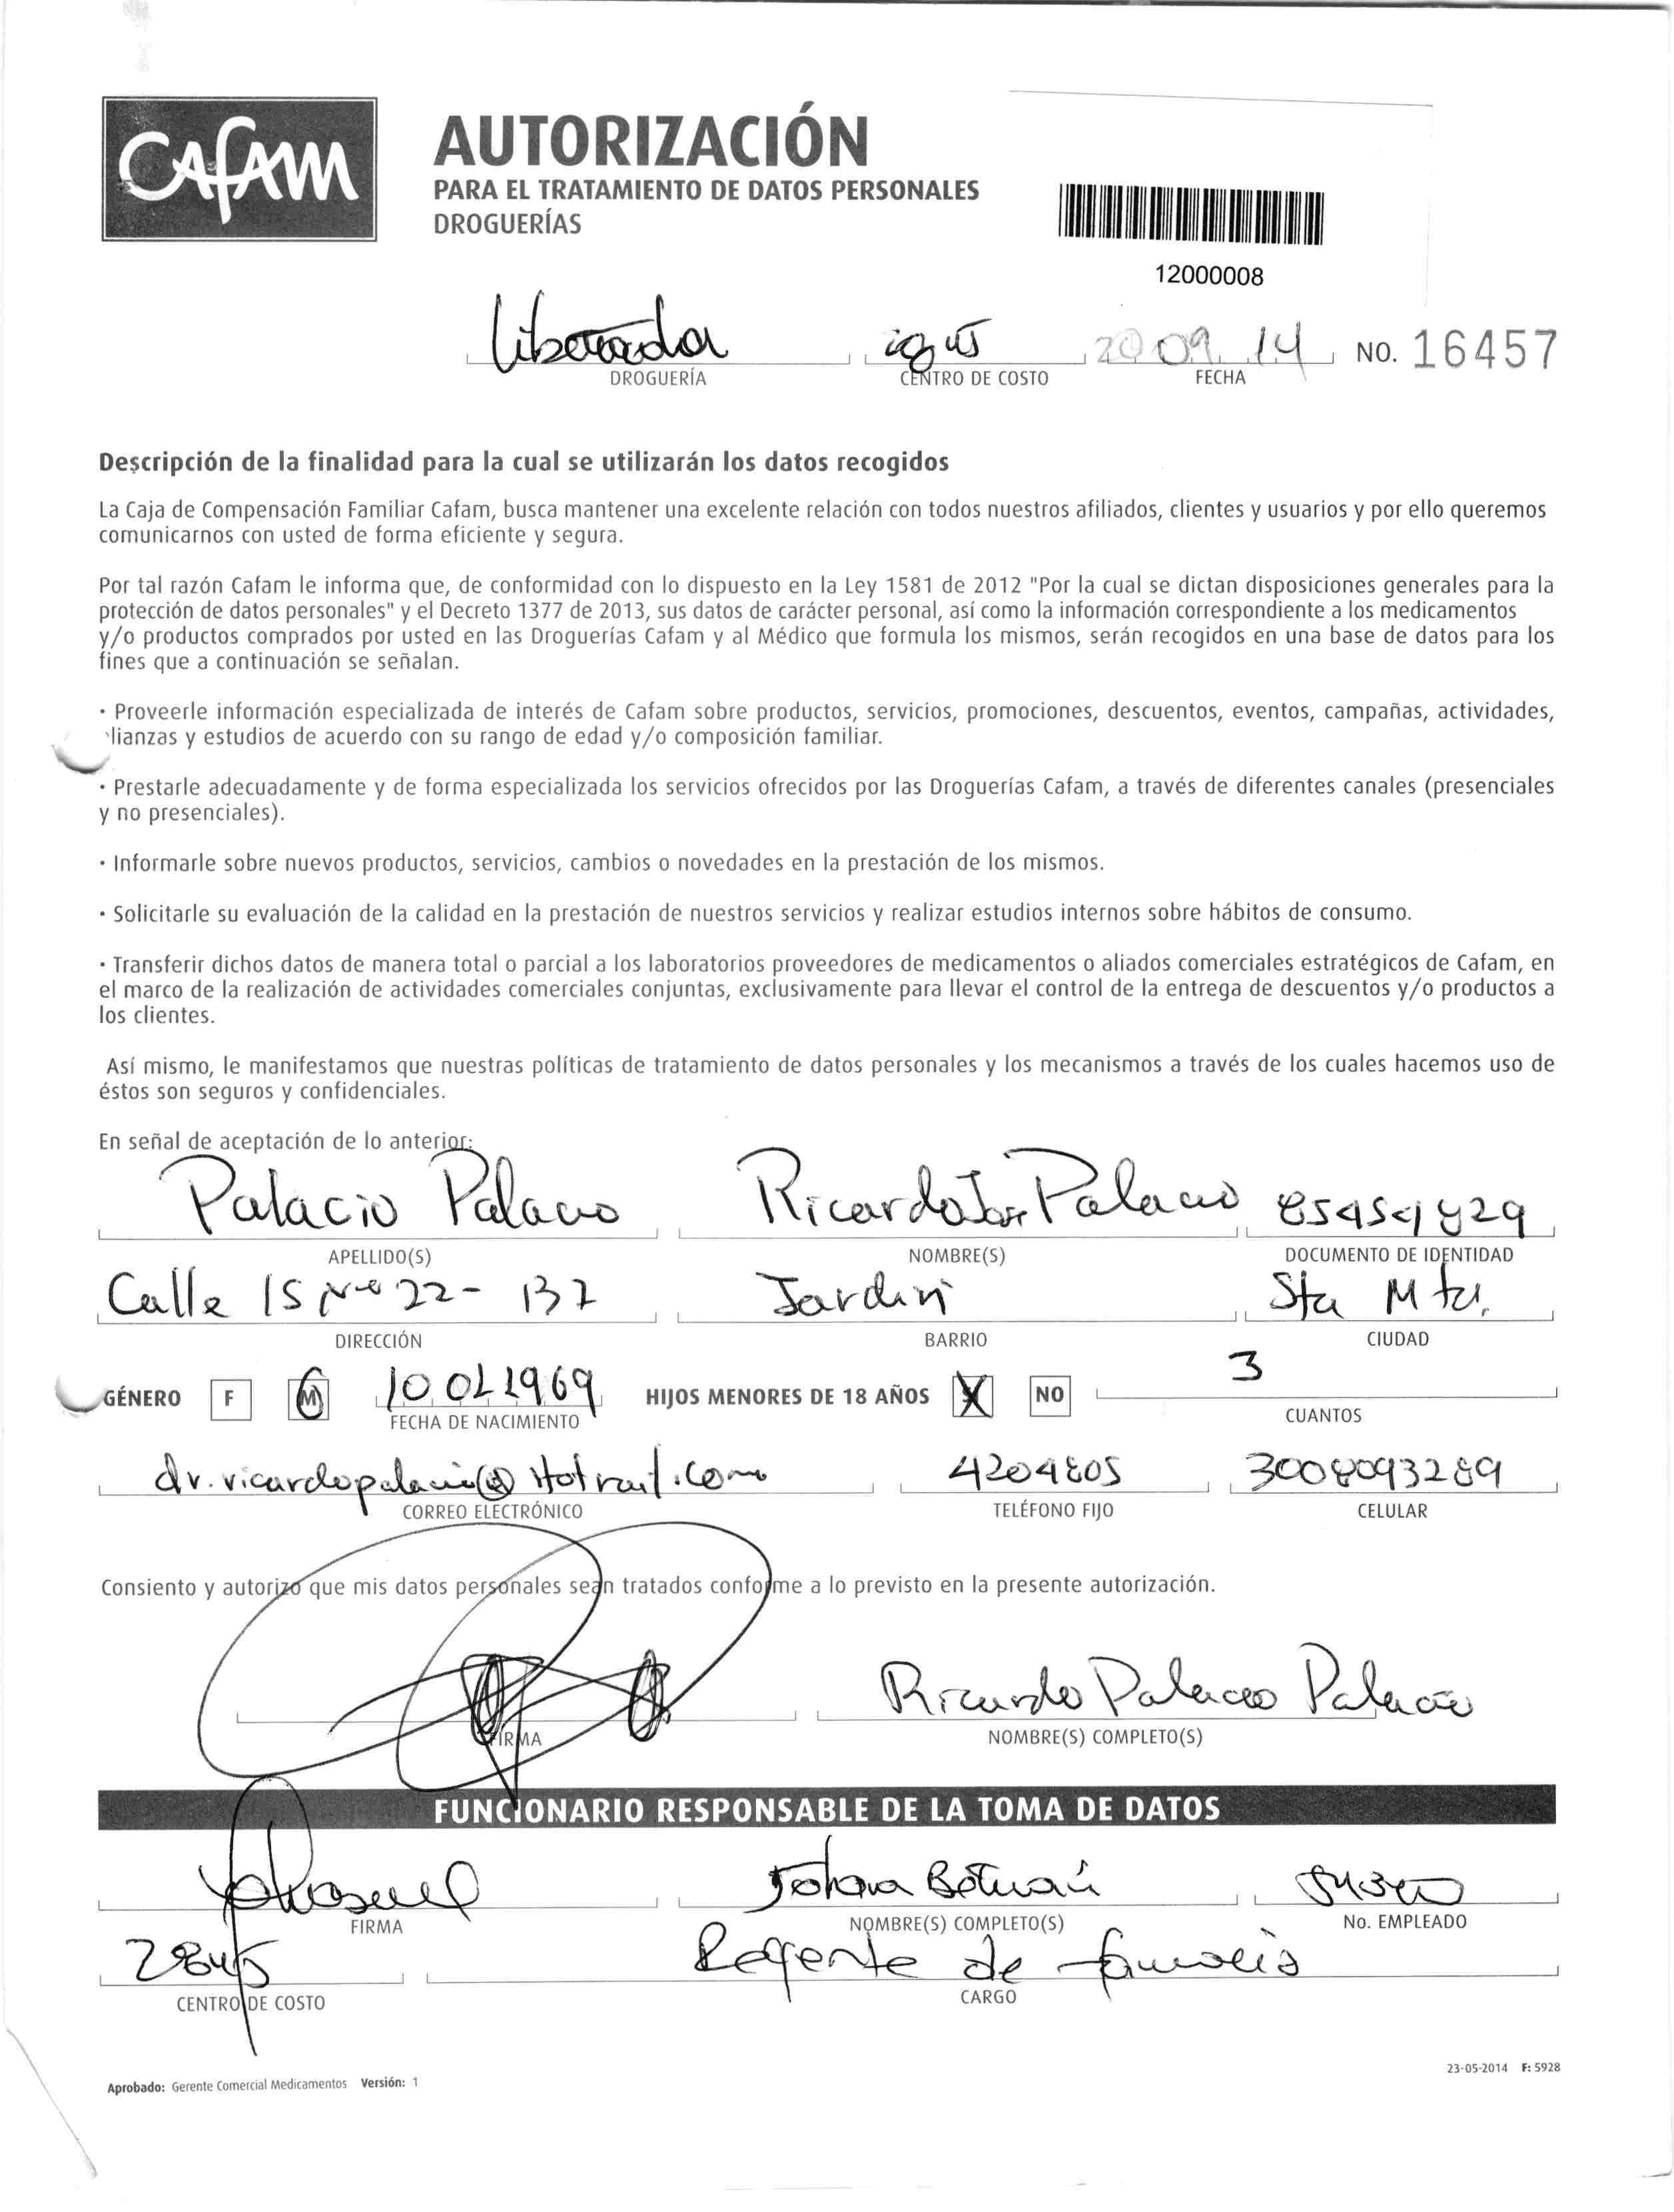 CAFAM
AUTORIZACIÓN
PARA EL TRATAMIENTO DE DATOS PERSONALES
DROGUERÍAS
12000008
Libertador 20 09 14 NO. 16457
DROGUERÍA CENTRO DE COSTO FECHA
Descripción de la finalidad para la cual se utilizarán los datos recogidos
La Caja de Compensación Familiar Cafam, busca mantener una excelente relación con todos nuestros afiliados, clientes y usuarios y por ello queremos
comunicarnos con usted de forma eficiente y segura.
Por tal razón Cafam le informa que, de conformidad con lo dispuesto en la Ley 1581 de 2012 "Por la cual se dictan disposiciones generales para la
protección de datos personales" y el Decreto 1377 de 2013, sus datos de carácter personal, así como la información correspondiente a los medicamentos
y/o productos comprados por usted en las Droguerías Cafam y al Médico que formula los mismos, serán recogidos en una base de datos para los
fines que a continuación se señalan.
· Proveerle información especializada de interés de Cafam sobre productos, servicios, promociones, descuentos, eventos, campañas, actividades,
lianzas y estudios de acuerdo con su rango de edad y/o composición familiar.
· Prestarle adecuadamente y de forma especializada los servicios ofrecidos por las Droguerías Cafam, a través de diferentes canales (presenciales
y no presenciales).
· Informarle sobre nuevos productos, servicios, cambios o novedades en la prestación de los mismos.
· Solicitarle su evaluación de la calidad en la prestación de nuestros servicios y realizar estudios internos sobre hábitos de consumo.
· Transferir dichos datos de manera total o parcial a los laboratorios proveedores de medicamentos o aliados comerciales estratégicos de Cafam, en
el marco de la realización de actividades comerciales conjuntas, exclusivamente para llevar el control de la entrega de descuentos y/o productos a
los clientes.
Así mismo, le manifestamos que nuestras políticas de tratamiento de datos personales y los mecanismos a través de los cuales hacemos uso de
éstos son seguros y confidenciales.
En señal de aceptación de lo anterior:
Palacio Palacio Ricardo Jose Palacio
APELLIDO(S) NOMBRE(S) DOCUMENTO DE IDENTIDAD
Calle 15 No 22- 137 Jardin Sta Mta.
DIRECCIÓN BARRIO CIUDAD
GÉNERO F M 10 01 1969 HIJOS MENORES DE 18 AÑOS X NO 3
FECHA DE NACIMIENTO CUANTOS
dr.ricardopalacio@Hotmail.com 4204805 3008093289
CORREO ELECTRÓNICO TELÉFONO FIJO CELULAR
Consiento y autorizo que mis datos personales sean tratados conforme a lo previsto en la presente autorización.
Ricardo Palacio Palacio
FIRMA NOMBRE(S) COMPLETO(S)
FUNCIONARIO RESPONSABLE DE LA TOMA DE DATOS
Johana
FIRMA NOMBRE(S) COMPLETO(S) No. EMPLEADO
2845 Regente de farmacia
CENTRO DE COSTO CARGO
23-05-2014 F: 5928
Aprobado: Gerente Comercial Medicamentos Versión: 1